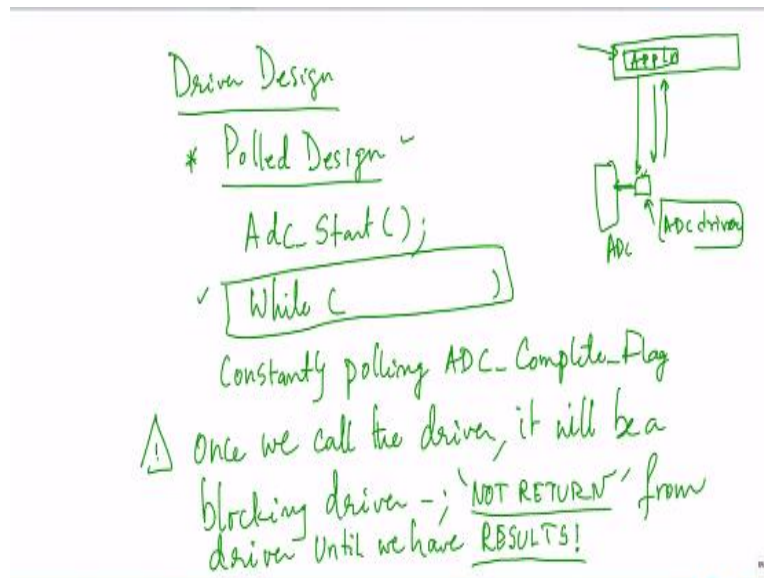 Driver Design
* Polled Design
Adc_Start();
While ( )
Constantly polling ADC_Complete_Flag
Once we call the driver, it will be a
blocking driver -; 'NOT RETURN' from
driver until we have RESULTS!
APPLn
ADC driver
ADC